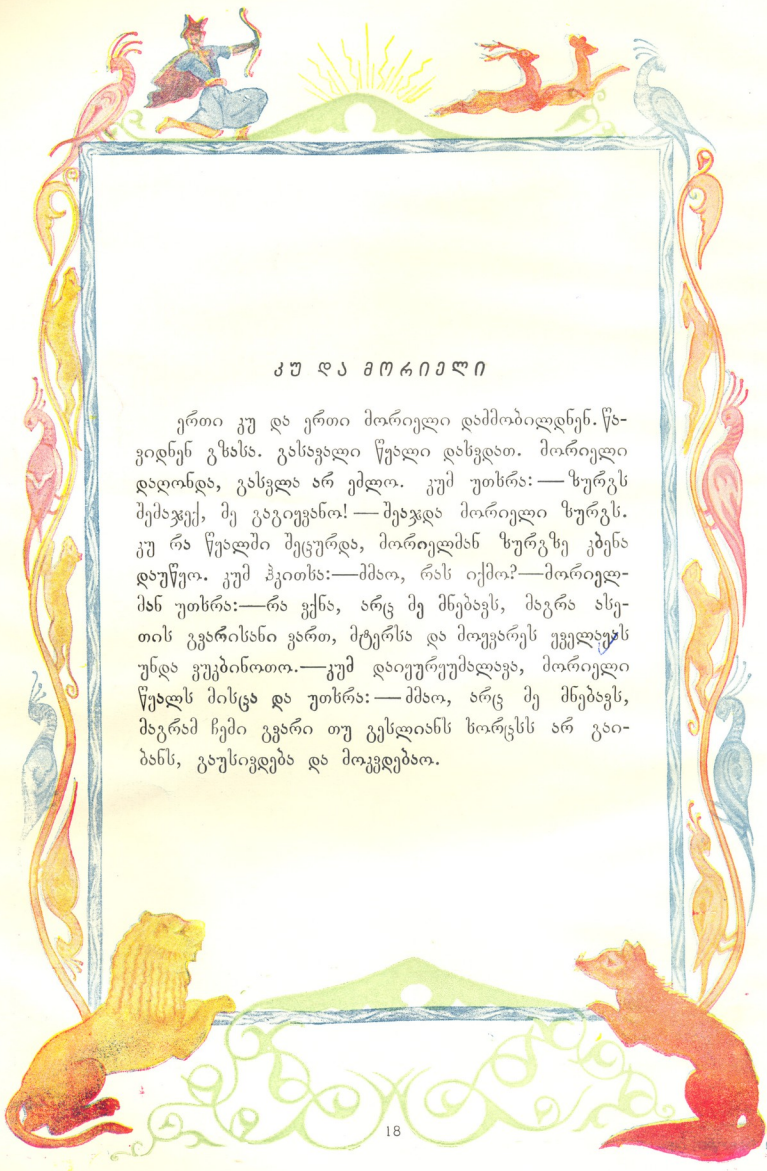 კუ და მორიელი
ერთი კუ და ერთი მორიელი დაძმობილდნენ. წა-
ვიდნენ გზასა. გასავალი წყალი დახვდათ. მორიელი
დაღონდა, გასვლა არ ეძლო. კუმ უთხრა: — ზურგს
შემაჯექ, მე გაგიყვანო! — შეაჯდა მორიელი ზურგს.
კუ რა წყალში შეცურდა, მორიელმან ზურგზე კბენა
დაუწყო. კუმ ჰკითხა:—ძმაო, რას იქმო?—მორიელ-
მან უთხრა:—რა ვქნა, არც მე მნებავს, მაგრა ასე-
თის გვარისანი ვართ, მტერსა და მოყვარეს ყველაყას
უნდა ვუკბინოთო.—კუმ დაიყურყუმალავა, მორიელი
წყალს მისცა და უთხრა: — ძმაო, არც მე მნებავს,
მაგრამ ჩემი გვარი თუ გესლიანს ხორცსს არ გაი-
ბანს, გაუსივდება და მოკვდებაო.
18